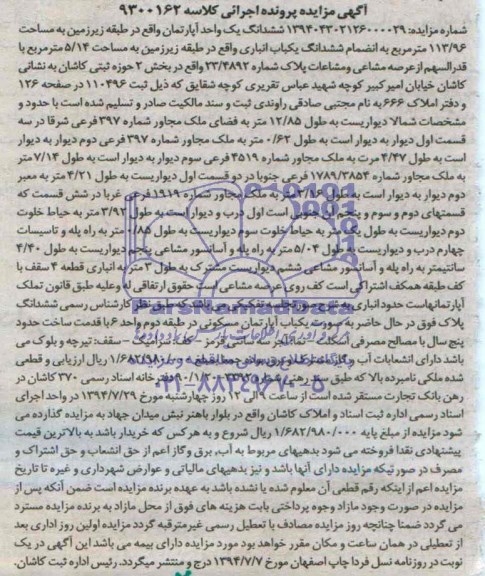 آگهی مزایده پرونده اجرائی کلاسه ۹۳۰۰۱۶۲
شماره مزایده: ۱۳۹۴۰۴۳۰۲۱۲۶۰۰۰۰۲۹ ششدانگ یک واحد آپارتمان واقع در طبقه زیرزمین به مساحت
۱۱۳/۹۶ مترمربع به انضمام ششدانگ یکباب انباری واقع در طبقه زیرزمین به مساحت ۵/۱۴ مترمربع با
قدرالسهم از عرصه مشاعی و مشاعات پلاک شماره ۲۳/۴۸۹۲ واقع در بخش ۲ حوزه ثبتی کاشان به نشانی
کاشان خیابان امیرکبیر کوچه شهید عباس تقریری کوچه شقایق که ذیل ثبت ۱۱۰۴۹۶ در صفحه ۱۲۶
و دفتر املاک ۶۶۶ به نام مجتبی صادقی راوندی ثبت و سند مالکیت صادر و تسلیم شده است با حدود و
مشخصات شمالا دیواریست به طول ۱۲/۸۵ متر به فضای ملک مجاور شماره ۳۹۷ فرعی شرقا در سه
قسمت اول دیوار به دیوار است به طول ۰/۶۲ متر به ملک مجاور شماره ۳۹۷ فرعی دوم دیوار به دیوار
است به طول ۴/۴۷ مرت به ملک مجاور شماره ۴۵۱۹ فرعی سوم دیوار به دیوار است به طول ۷/۱۴ متر
به ملک مجاور شماره ۱۷۸۹/۳۸۵۴ فرعی جنوبا در دو قسمت اول دیواریست به طول ۴/۲۱ متر به معبر
دوم دیوار به دیوار است به طول ۳/۸۶ متر به ملک مجاور شماره ۱۹۱۹ فرعی غربا در شش قسمت که
قسمتهای دوم و سوم و پنجم آن جنوبی است اول درب و دیوار است به طول ۳/۹۲ متر به حیاط خلوت
دوم دیواریست به طول یک متر به حیاط خلوت سوم دیواریست به طول ۰/۸۵ متر به راه پله و تاسیسات
چهارم درب و دیواریست به طول ۵/۰۴ متر به راه پله و آسانسور مشاعی پنجم دیواریست به طول ۴/۴۰
سانتیمتر به راه پله و آسانسور مشاعی ششم دیواریست مشترک به طول ۳ متر به انباری قطعه ۴ سقف با
کف طبقه همکف اشتراکی است کف روی عرصه مشاعی است حقوق ارتفاقی له و علیه طبق قانون تملک
آپارتمانهاست حدود انباری به شرح صورتجلسه تفکیکی می باشد که طبق نظر کارشناس رسمی ششدانگ
پلاک فوق در حال حاضر به صورت یکباب آپارتمان مسکونی در طبقه دوم واحد ۶ با قدمت ساخت حدود
پنج سال با مصالح مصرفی اسکلت سقف: تیرچه و بلوک می
باشد دارای انشعابات آب و گاز ۱/۶۸۲/۹۸۰/۰۰۰ ریال ارزیابی و قطعی
شده ملکی نامبرده بالا که طبق سند رهنی شماره دفترخانه اسناد رسمی ۳۷۰ کاشان در
رهن بانک تجارت مستقر شده است از ساعت ۹ الی ۱۲ روز چهارشنبه مورخ ۱۳۹۴/۷/۲۹ در واحد اجرای
اسناد رسمی اداره ثبت اسناد و املاک کاشان واقع در بلوار باهنر نبش میدان جهاد به مزایده گذارده می
شود مزایده از مبلغ پایه ۱/۶۸۲/۹۸۰/۰۰۰ ریال شروع و به هر کس که خریدار باشد به بالاترین قیمت
پیشنهادی نقدا فروخته می شود بدهیهای مربوط به آب، برق و گاز اعم از حق انشعاب و حق اشتراک و
مصرف در صورتیکه مزایده دارای آنها باشد و نیز بدهیهای مالیاتی و عوارض شهرداری و غیره تا تاریخ
مزایده اعم از اینکه رقم قطعی آن معلوم شده یا نشده باشد به عهده برنده مزایده است ضمن آنکه پس از
مزایده در صورت وجود مازاد وجوه پرداختی بابت هزینه های فوق از محل مازاد به برنده مزایده مسترد
می گردد ضمنا چنانچه روز مزایده مصادف با تعطیل رسمی غیرمترقبه گردد مزایده اولین روز اداری بعد
از تعطیلی در همان ساعت و مکان مقرر خواهد بود مورد مزایده دارای بیمه می باشد این آگهی در یک
نوبت در روزنامه نسل فردا چاپ اصفهان مورخ ۱۳۹۴/۷/۷ درج و منتشر میگردد. رئیس اداره ثبت کاشان.
ParsNamadData
۰۲۱-۸۸۳۴۹۶۷۰-۵